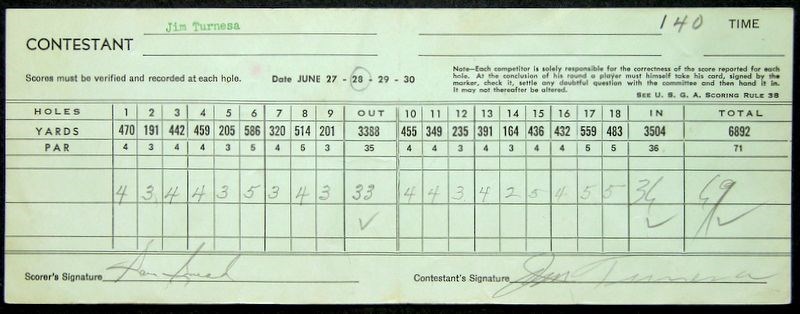 Jim Turnesa
140 TIME
CONTESTANT
Note—Each competitor is solely responsible for the correctness of the score reported for each
hole. At the conclusion of his round a player must himself take his card, signed by the
marker, check it, settle any doubtful question with the committee and then hand it in.
It may not thereafter be altered.
Scores must be verified and recorded at each hole. Date JUNE 27 - 28 - 29 - 30
SEE U. S. G. A. SCORING RULE 38
HOLES 1 2 3 4 5 6 7 8 9 OUT 10 11 12 13 14 15 16 17 18 IN TOTAL
YARDS 470 191 442 459 205 586 320 514 201 3388 455 349 235 391 164 436 432 559 483 3504 6892
PAR 4 3 4 4 3 5 4 5 3 35 4 4 3 4 3 4 4 5 5 36 71
4 3 4 4 3 5 3 4 3 33 4 4 3 4 2 5 4 5 5 36 69
Scorer's Signature Contestant's Signature Jim Turnesa